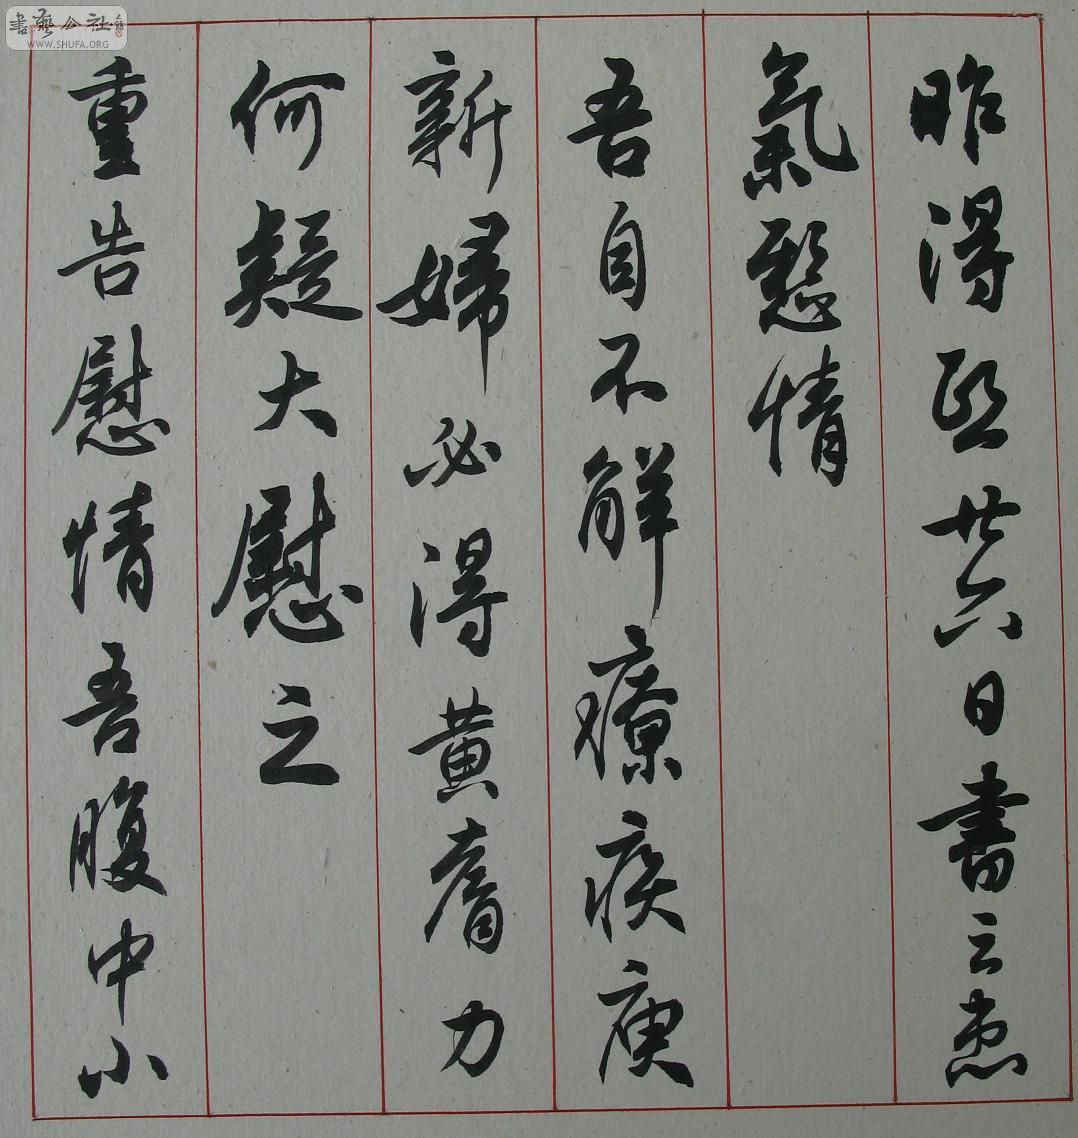 昨得熙廿六日書云患
氣懸情
吾自不解療疾庾
新婦必得黄耆力
何疑大慰之
重告慰情吾腹中小
書藝公社
WWW.SHUFA.ORG